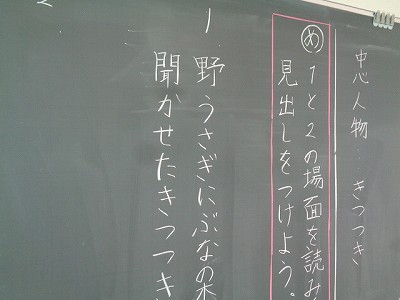 中心人物…きつつき
め 1と2の場面を読み
見出しをつけよう。
1 野うさぎにぶなの木
聞かせたきつつき
2